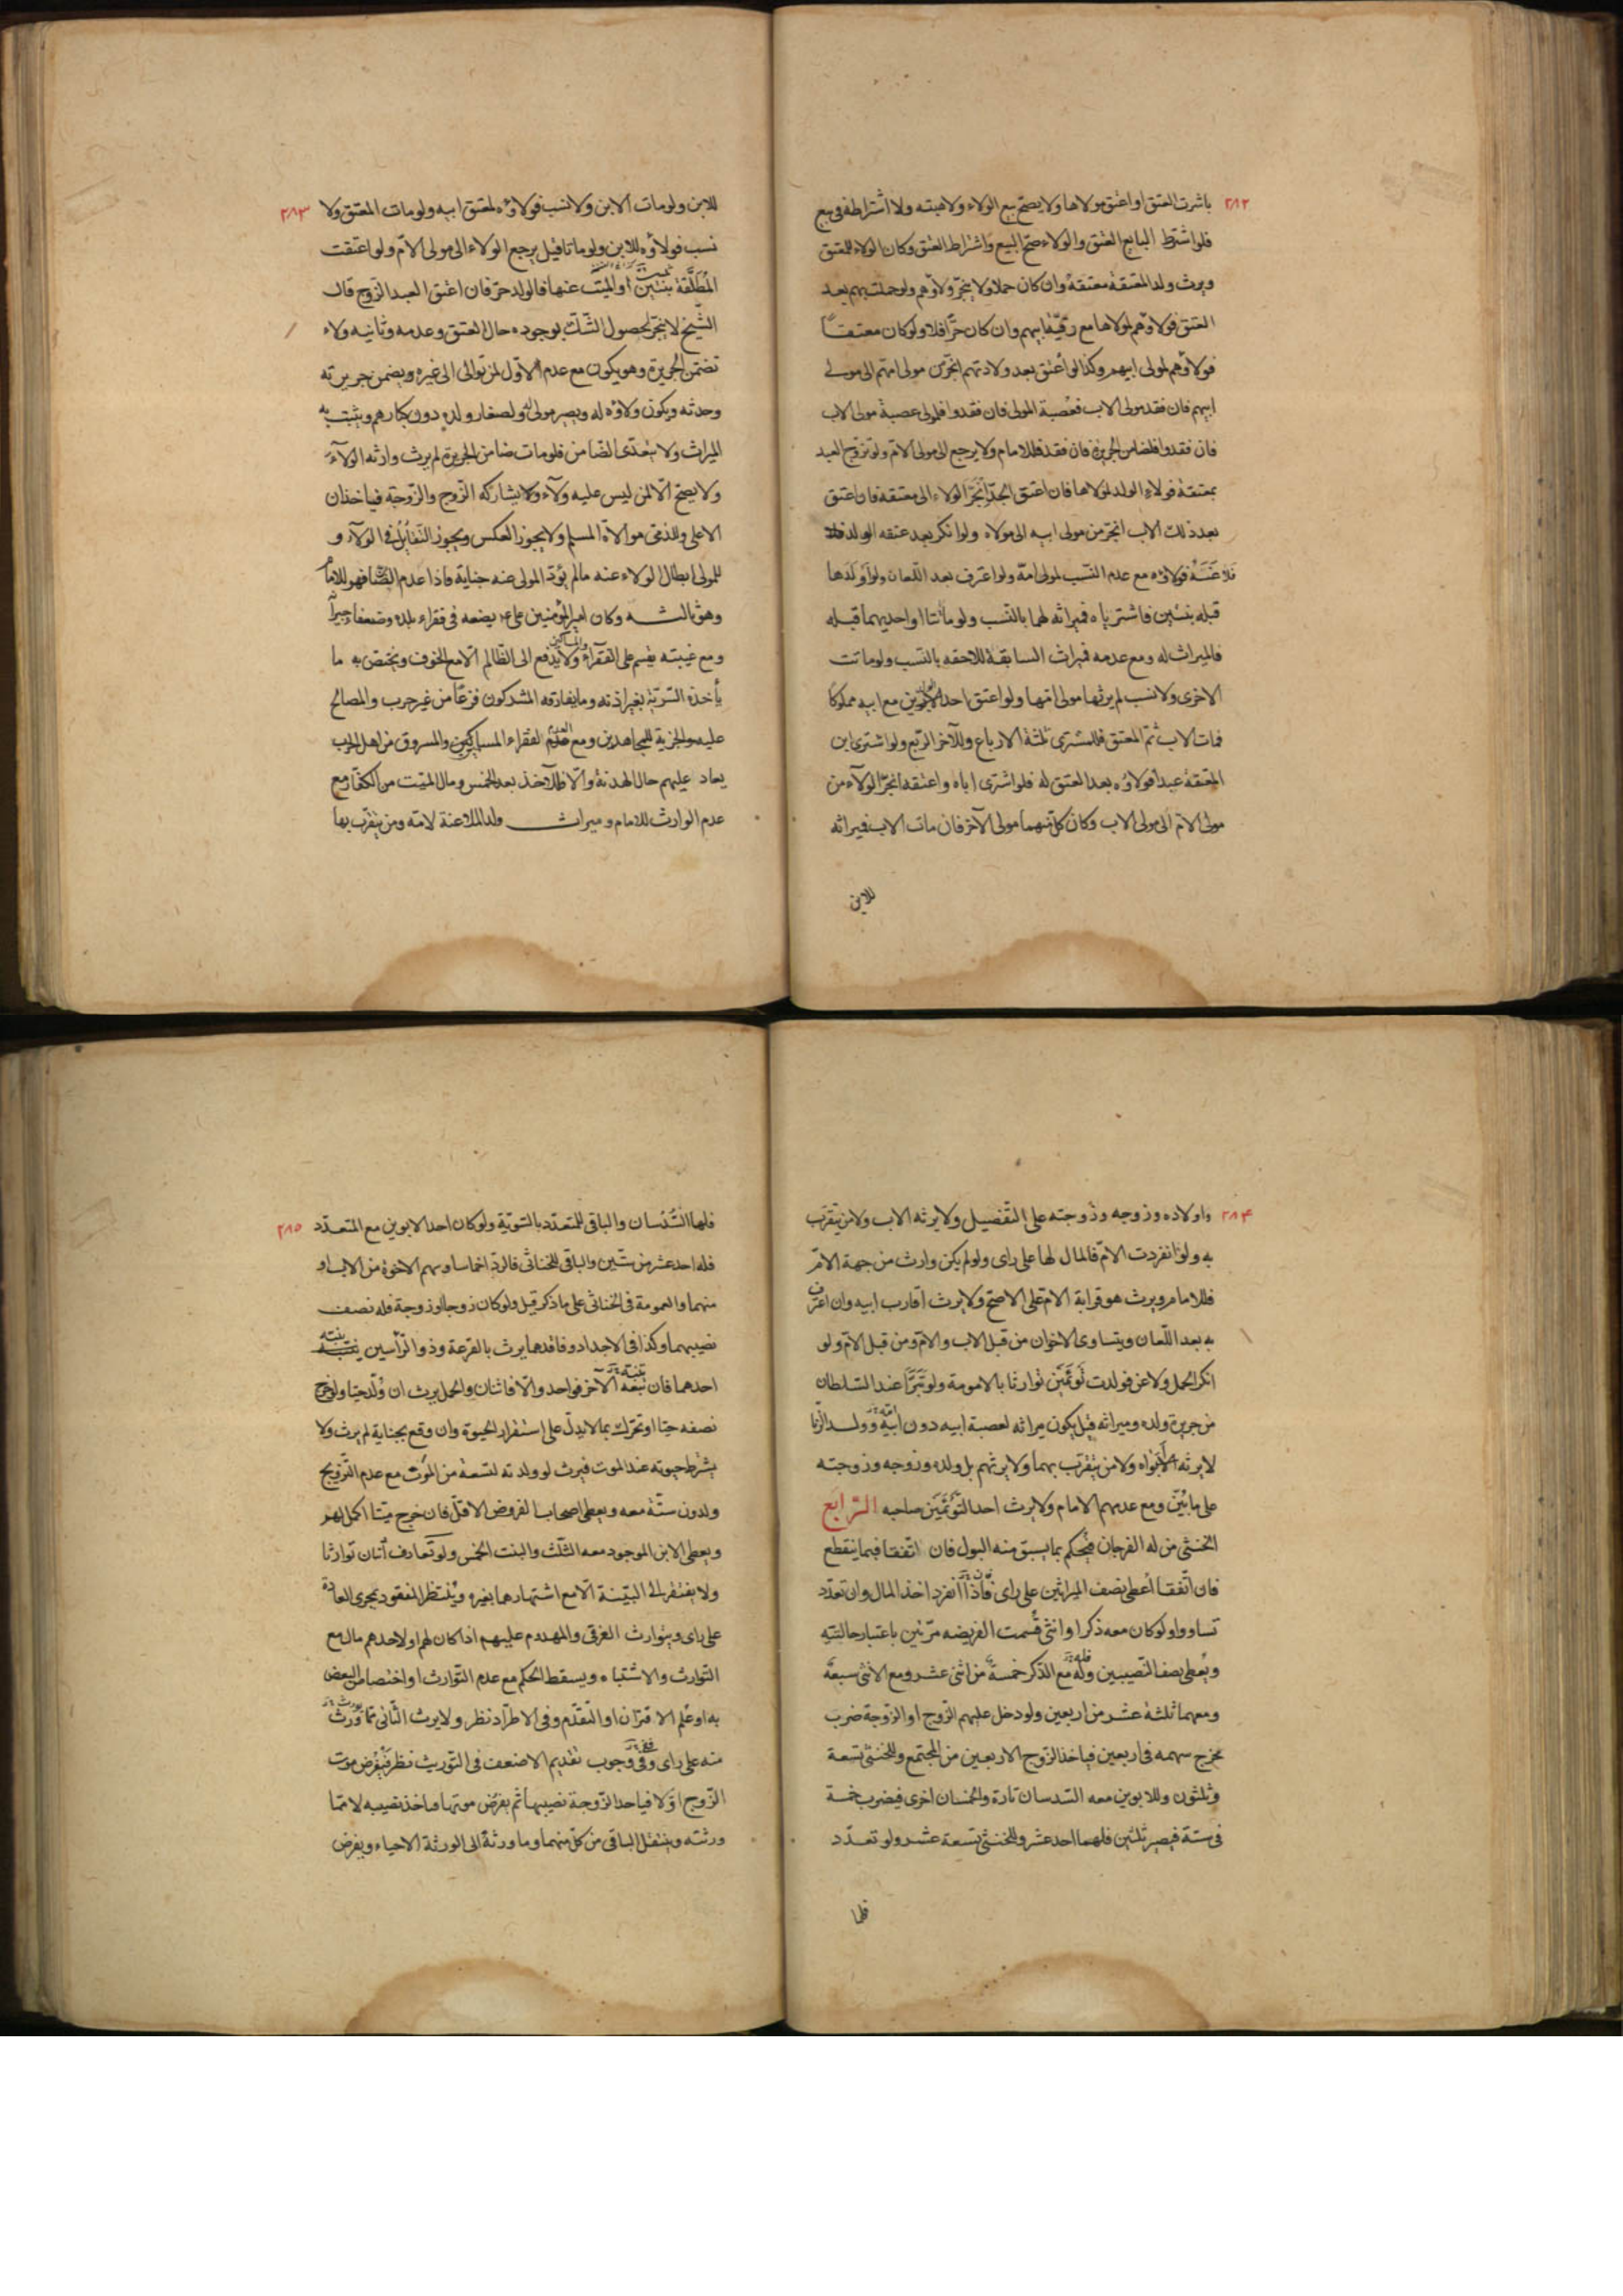 ٢٨٢
باشرت العتق او اعتق مولاها ولا يصح بيع الولاء ولا هبته ولا اشتراطه في بيع
فلو اشترط البايع العتق والولاء صح البيع واشتراط العتق وكان الولاء للمعتق
ويرث ولد المعتقة معتقه وان كان حملا ولا ينجر ولاؤهم ولو حملت بهم بعد
العتق فولاؤهم لمولاها مع رقية ابيهم وان كان حرا فلا ولو كان معتقا
فولاؤهم لمولى ابيهم وكذا لو اعتق بعد ولادتهم انجر من مولى امهم الى مولى
ابيهم فان فقد مولى الاب فعصبة المولى فان فقدوا فلمولى عصبة مولى الاب
فان فقدوا فلضامن الجريرة فان فقد فللامام ولا يرجع الى مولى الام ولو تزوج العبد
بمعتقة فولاء الولد لمولاها فان اعتق الجد انجر الولاء الى معتقه فان اعتق
بعد ذلك الاب انجر من مولى ابيه الى مولاه ولو انكر بعد عتقه الولد
فلاعنه فولاؤه مع عدم النسب لمولى امه ولو اعترف بعد اللعان ولو اولدها
قبله بنتين فاشترياه فميراثه لهما بالنسب ولو ماتتا او احديهما قبله
فالميراث له ومع عدمه فميراث السابقة للاحقه بالنسب ولو ماتت
الاخرى ولا نسب لم يرثها مولى امها ولو اعتق احد الولدين مع ابيه مملوكا
فمات الاب ثم المعتق فللمشترى ثلثة الارباع وللآخر الربع ولو اشترى ابن
المعتقة عبدا فولاؤه بعد العتق له فلو اشترى اباه واعتقه انجر الولاء من
مولى الام الى مولى الاب وكان كل منهما مولى الآخر فان مات الاب فميراثه
للابن
٢٨٣
للابن ولو مات الابن ولا نسب فولاؤه لمعتق ابيه ولو مات المعتق ولا
نسب فولاؤه للابن ولو ماتا قيل يرجع الولاء الى مولى الام ولو اعتقت
المطلقة بنتين او الميت عنها فالولد حر فان اعتق العبد الزوج قال
الشيخ لا ينجر لحصول الشك بوجوده حال العتق وعدمه وثانيه ولاء
تضمن الجريرة وهو يكون مع عدم الاول لمن توالى الى غيره ويضمن جريرته
وحدثه ويكون ولاؤه له ويصير مولى له ولصغار ولده دون كبارهم ويثبت به
الميراث ولا يتعدى الضامن فلو مات ضامن الجريرة لم يرث وارثه الولاء
ولا يصح الا لمن ليس عليه ولاء ولا يشاركه الزوج والزوجة فياخذان
الاعلى وللذمى موالاة المسلم ولا يجوز العكس ويجوز التقابل في الولاء و
للمولى ابطال الولاء عنه مالم يؤد المولى عنه جناية فاذا عدم الضامن فهو للامام
وهو ثالثه وكان امير المؤمنين ع يضعه في فقراء بلده وضعفاء جيرانه
ومع غيبته يقسم على الفقراء والمساكين ولا يدفع الى الظالم الا مع الخوف ويختص به ما
يأخذه السرية بغير اذنه وما يفارقه المشركون فزعا من غير حرب والمصالح
عليه والجزية للمجاهدين ومع عدمهم لفقراء المساكين والمسروق من اهل الحرب
يعاد عليهم حال الهدنة والا فللآخذ بعد الخمس ومال الميت من الكفار مع
عدم الوارث للامام وميراث ولد الملاعنة لامه ومن يتقرب بها
٢٨٤
واولاده وزوجه وزوجته على التفصيل ولا يرثه الاب ولا من يتقرب
به ولو انفردت الام فالمال لها على راى ولو لم يكن وارث من جهة الام
فللامام ويرث هو قرابة الام على الاصح ولا يرث اقارب ابيه وان اعترف
به بعد اللعان ويتساوى الاخوان من قبل الاب والام ومن قبل الام ولو
انكر الحمل ولاعن فولدت توئمين توارثا بالامومة ولو تبرا عند السلطان
من جريرة ولده وميراثه قيل يكون ميراثه لعصبة ابيه دون ابيه وولد الزنا
لا يرثه ابواه ولا من يتقرب بهما ولا يرثهم بل ولده وزوجه وزوجته
على ما بين ومع عدمهم الامام ولا يرث احد التوئمين صاحبه الرابع
الخنثى من له الفرجان فيحكم بما يسبق منه البول فان اتفقا فبما ينقطع
فان اتفقا اعطى نصف الميراثين على راى فاذا انفرد اخذ المال وان تعدد
تساووا ولو كان معه ذكر او انثى قسمت الفريضه مرتين باعتبار حالتيه
ويعطى نصف النصيبين وله مع الذكر خمسة من اثنى عشر ومع الانثى سبعة
ومعهما ثلثة عشر من اربعين ولو دخل عليهم الزوج او الزوجة ضرب
مخرج سهمه في اربعين فياخذ الزوج الاربعين من المجتمع وللخنثى تسعة
وثلثون وللابوين معه السدسان تارة والخمسان اخرى فيضرب خمسة
في ستة فيصير ثلثين فلهما احد عشر وللخنثى تسعة عشر ولو تعدد
فلهما
٢٨٥
فلهما السدسان والباقى للمتعدد بالسوية ولو كان احد الابوين مع المتعدد
فله احد عشر من ستين والباقى للخناثى فالرد اخماسا وسهم الاخوة من الاب او
منهما والعمومة في الخناثى على ما ذكر قيل ولو كان زوجا او زوجة فله نصف
نصيبهما وكذا في الاجداد وفاقدهما يرث بالقرعة وذو الرأسين ينبه
احدهما فان تنبه الآخر فواحد والا فاثنان والحمل يرث ان ولد حيا ولو خرج
نصفه حيا او تحرك بما لا يدل على استقرار الحيوة وان وقع بجناية لم يرث ولا
يشرط حيوته عند الموت فيرث لو ولدته لتسعة من الموت مع عدم التزويج
ولدون ستة معه ويعطى اصحاب الفروض الاقل فان خرج ميتا اكمل لهم
ويعطى الابن الموجود معه الثلث والبنت الخمس ولو تعارف اثنان توارثا
ولا يفتقر الى البينة الا مع اشتهارهما بغيره وينتظر المفقود بمجرى العادة
على راى ويتوارث الغرقى والمهدوم عليهم اذا كان لهم او لاحدهم مال مع
التوارث والاشتباه ويسقط الحكم مع عدم التوارث او اختصاص البعض
به او علم الاقتران او التقدم وفى الاطراد نظر ولا يرث الثانى مما ورث
منه على راى وفى وجوب تقديم الاضعف في التوريث نظر فيفرض موت
الزوج اولا فياخذ الزوجة نصيبها ثم يفرض موتها وياخذ نصيبه لا مما
ورثته وينتقل الباقى من كل منهما وما ورثه الى الورثة الاحياء ويفرض